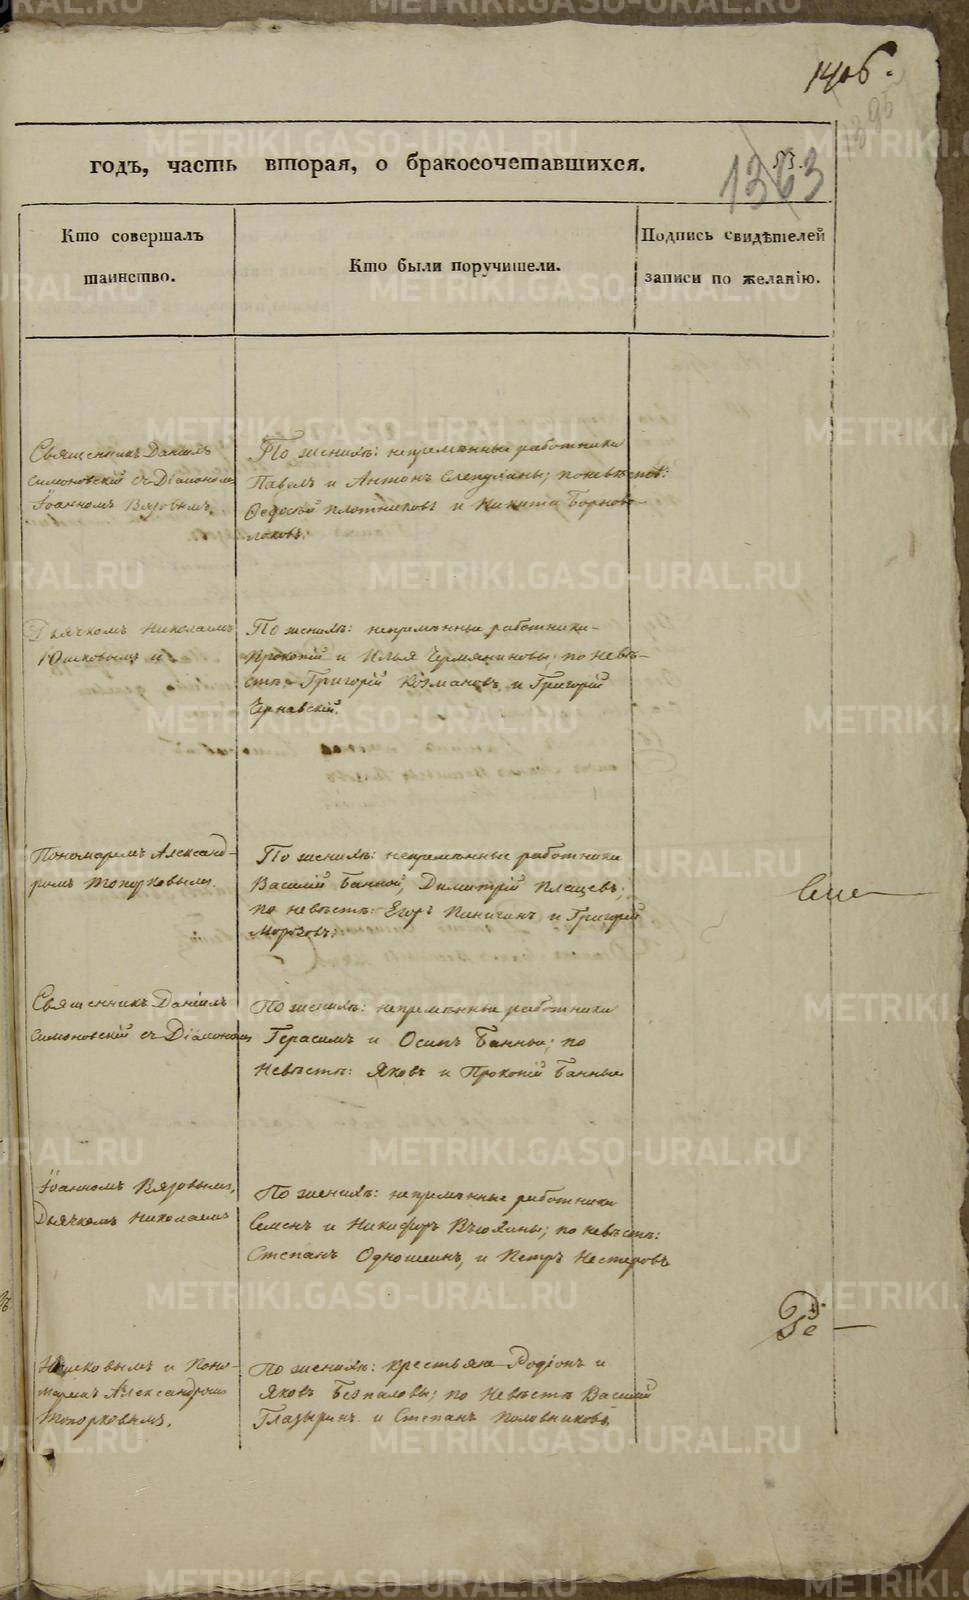 1406.
1363
годъ, часть вторая, о бракосочетавшихся.
Кто совершалъ
таинство.
Кто были поручители.
Подпись свидѣтелей
записи по желанію.
Священникъ Даніилъ
Симоновскій съ Діакономъ
Іоанномъ Вяровымъ,
По женихѣ: непремѣнные работники
Павелъ и Антонъ Слепухины; по невѣстѣ:
Федосѣй Плотниковъ и Никита Борново-
локовъ.
Дьячкомъ Николаемъ
Юшковымъ и
По женихѣ: непремѣнные работники
Прокопій и Илья Чермяниновы; по невѣ-
стѣ: Григорій Козмановъ и Григорій
Чернавскій.
Пономаремъ Александ-
ромъ Топорковымъ.
По женихѣ: непремѣнные работники
Василій Банной, Димитрій Плещевъ;
по невѣстѣ: Егоръ Пиничинъ и Григорій
Морозовъ.
Священникъ Даніилъ
Симоновскій съ Діакономъ
По женихѣ: непремѣнные работники
Герасимъ и Осипъ Банные; по
невѣстѣ: Яковъ и Прокопій Банные
Іоанномъ Вяровымъ,
Дьячкомъ Николаемъ
По женихѣ: непремѣнные работники
Семенъ и Никифоръ Вьюхины; по невѣстѣ:
Степанъ Одношеинъ, и Петръ Нестеровъ
Юшковымъ и Поно-
маремъ Александромъ
Топорковымъ.
По женихѣ: крестьяне Родіонъ и
Яковъ Безпаловы; по невѣстѣ Василій
Глазыринъ и Степанъ Половниковъ.
METRIKI.GASO-URAL.RU